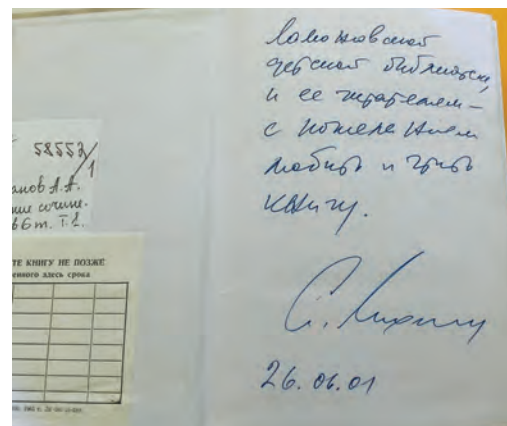 58553/1
анов А.А.
ние сочине-
в 6 т. Т.1.
ТЕ КНИГУ НЕ ПОЗЖЕ
енного здесь срока
детской библиотеке,
и ее читателям –
с пожеланием
любить и чтить
книгу.
26.06.01